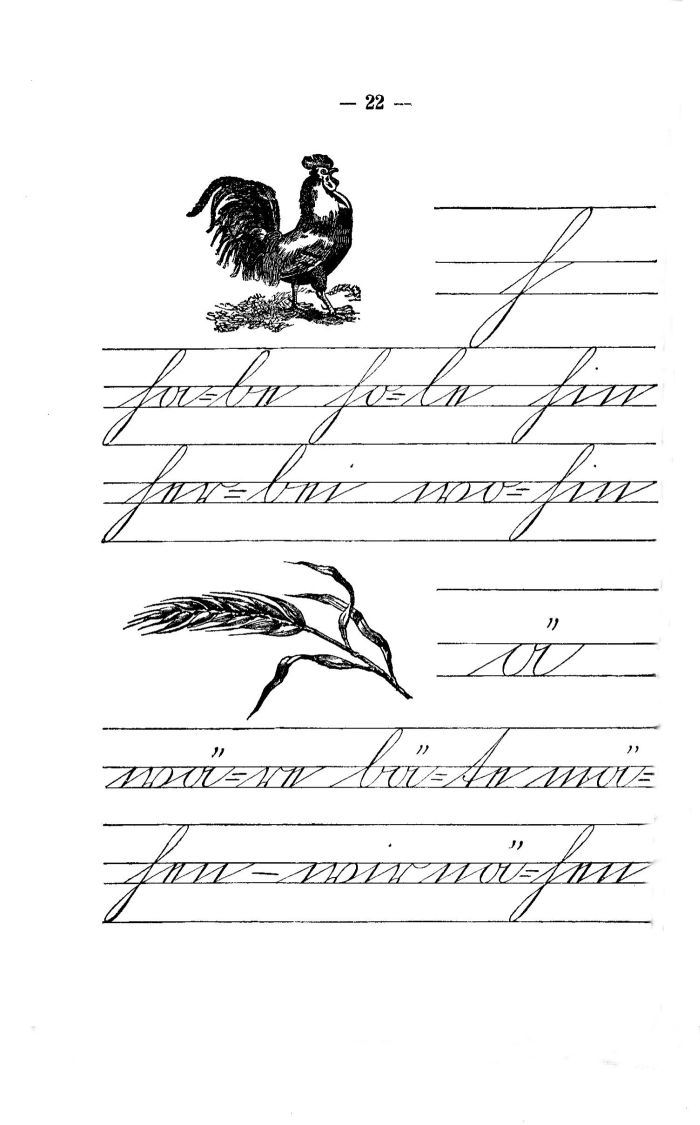 — 22 —
h
ha=be ho=le hin
her=bei wo=hin
ä
wä=re bä=te mä=
hen – wir nä=hen